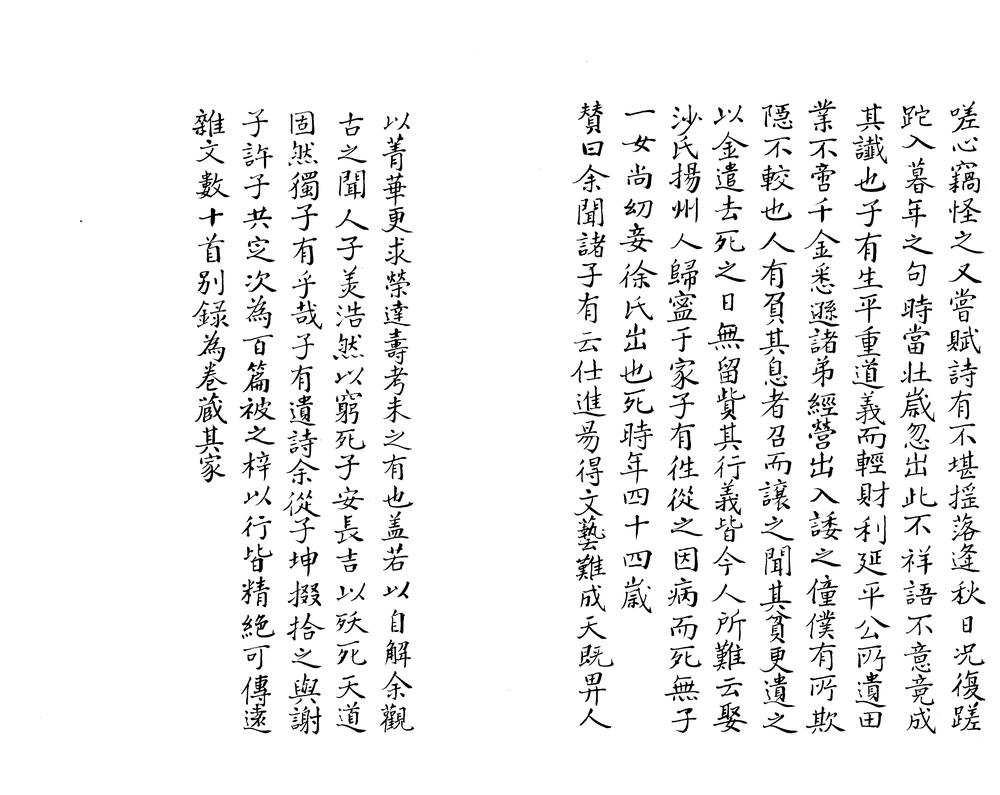 嗟心竊怪之又嘗賦詩有不堪搖落逢秋日況復蹉
跎入暮年之句時當壯歲忽出此不祥語不意竟成
其讖也子有生平重道義而輕財利延平公所遺田
業不啻千金悉遜諸弟經營出入諉之僮僕有所欺
隱不較也人有負其息者召而讓之聞其貧更遺之
以金遣去死之日無留貲其行義皆今人所難云娶
沙氏揚州人歸寍于家子有徃從之因病而死無子
一女尚幼妾徐氏出也死時年四十四歲
賛曰余聞諸子有云仕進易得文藝難成天既畀人
以菁華更求榮達壽考未之有也盖若以自解余觀
古之聞人子美浩然以窮死子安長吉以殀死天道
固然獨子有乎哉子有遺詩余從子坤掇拾之與謝
子許子共定次為百篇被之梓以行皆精絶可傳遠
雜文數十首别録為卷藏其家